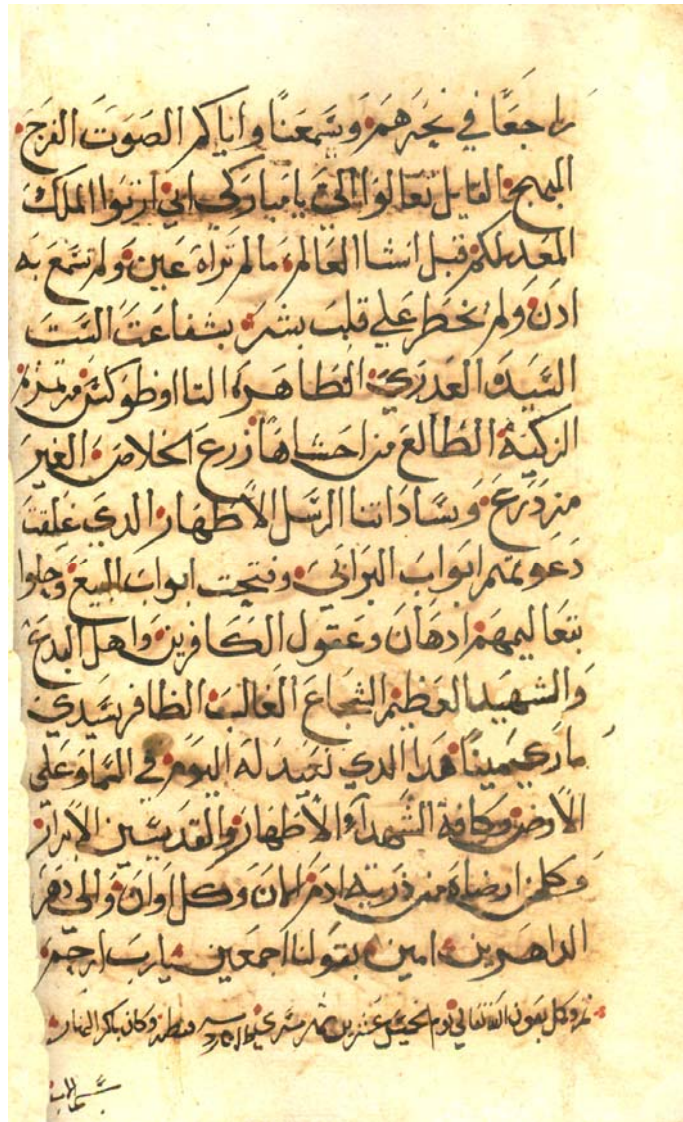 راجعًا في بحرهم وسمعنا واياكم الصوت الفرج
البهج القايل تعالوا اليَّ يا مباركي ابي ارتوا الملك
المعد لكم قبل انشا العالم ما لم تراه عين ولم تسمع به
ادن ولم يخطر علي قلب بشر بشفاعت الست
السيده العدري الطاهره التااوطوكس مرتمريم
الزكيه الطالع من احشاها زرع الخلاص الغير
من زرع وبساداتنا الرسل الاطهار الدي غلقت
دعوتهم ابواب البرابي وفتحت ابواب البيع وجلوا
بتعاليمهم ادهان وعقول الكافرين واهل البدع
والشهيد العظيم الشجاع الغالب الظافر سيدي
ماري مينا هدا الدي نعيد له اليوم في السما وعلى
الارض وكافة الشهدآء الاطهار والقديسين الابرار
وكلمن ارضاه من ذرية ادم الان وكل اوان والى دهر
الداهرين امين بقولنا اجمعين يارب ارحم
تم وكمل بعون الله تعالي يوم الخميس عشرين شهر مسري وكان باكر النهار